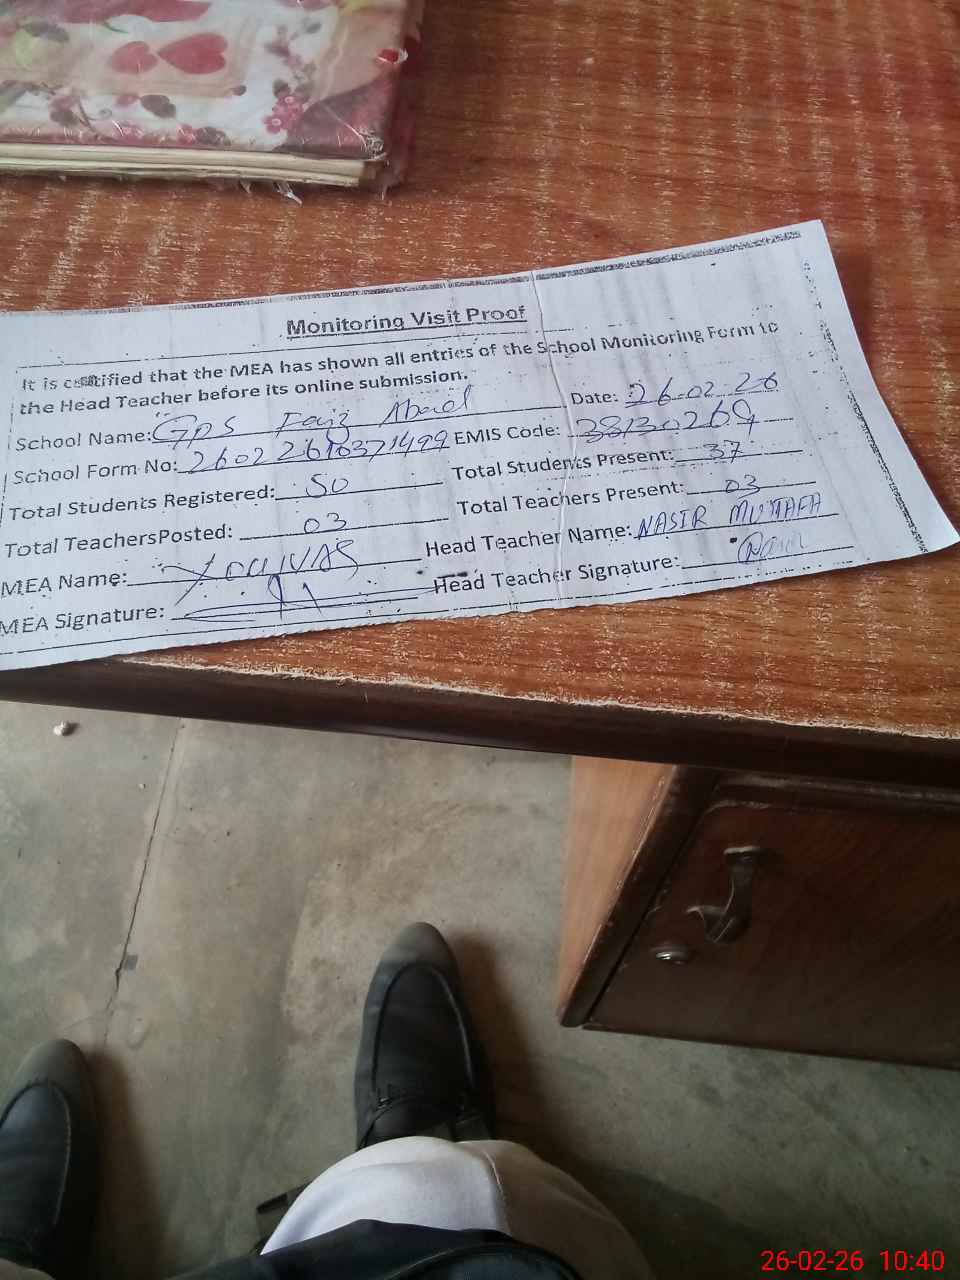 Monitoring Visit Proof
It is certified that the MEA has shown all entries of the School Monitoring Form to
the Head Teacher before its online submission.
School Name: GPS Faiz Abad Date: 26.02.26
School Form No: 26022610371499 EMIS Code: 38130269
Total Students Registered: 50 Total Students Present: 37
Total TeachersPosted: 03 Total Teachers Present: 03
MEA Name: Head Teacher Name: NASIR MUSTAFA
MEA Signature: Head Teacher Signature: Nasir
26-02-26 10:40